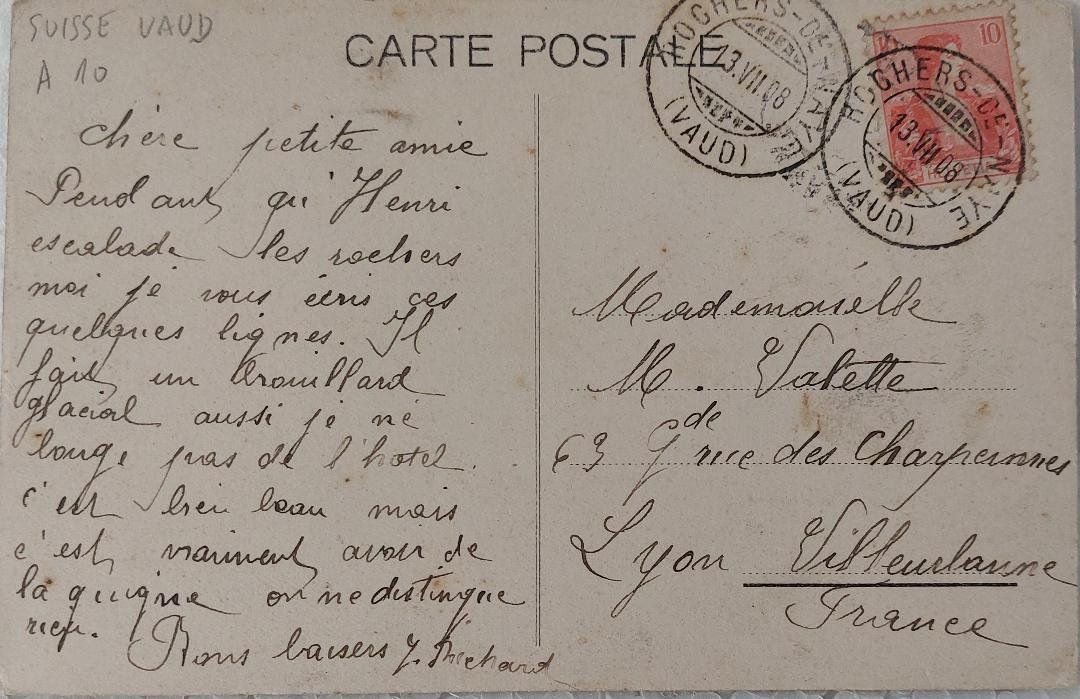 SUISSE VAUD
A 10
CARTE POSTALE
ROCHERS-DE-NAYE
13.VII.08
(VAUD)
10
ROCHERS-DE-NAYE
13.VII.08
(VAUD)
Chère petite amie
Pendant qu'Henri
escalade les rochers
moi je vous écris ces
quelques lignes. Il
fait un brouillard
glacial aussi je ne
bouge pas de l'hotel.
C'est bien beau mais
c'est vraiment avoir de
la guigne on ne distingue
rien.
Bons baisers J. Richard
Mademoiselle
M. Valette
63 Gde rue des Charpennes
Lyon Villeurbanne
France